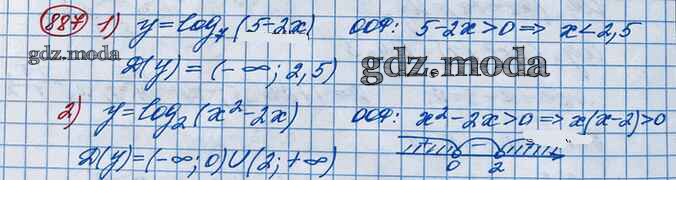 887 1) y = log₇(5-2x) ООФ: 5-2x>0 => x<2,5
gdz.moda
D(y) = (-∞; 2,5) gdz.moda
2) y = log₂(x²-2x) ООФ: x²-2x>0 => x(x-2)>0
D(y) = (-∞; 0) U (2; +∞) + - +
0 2